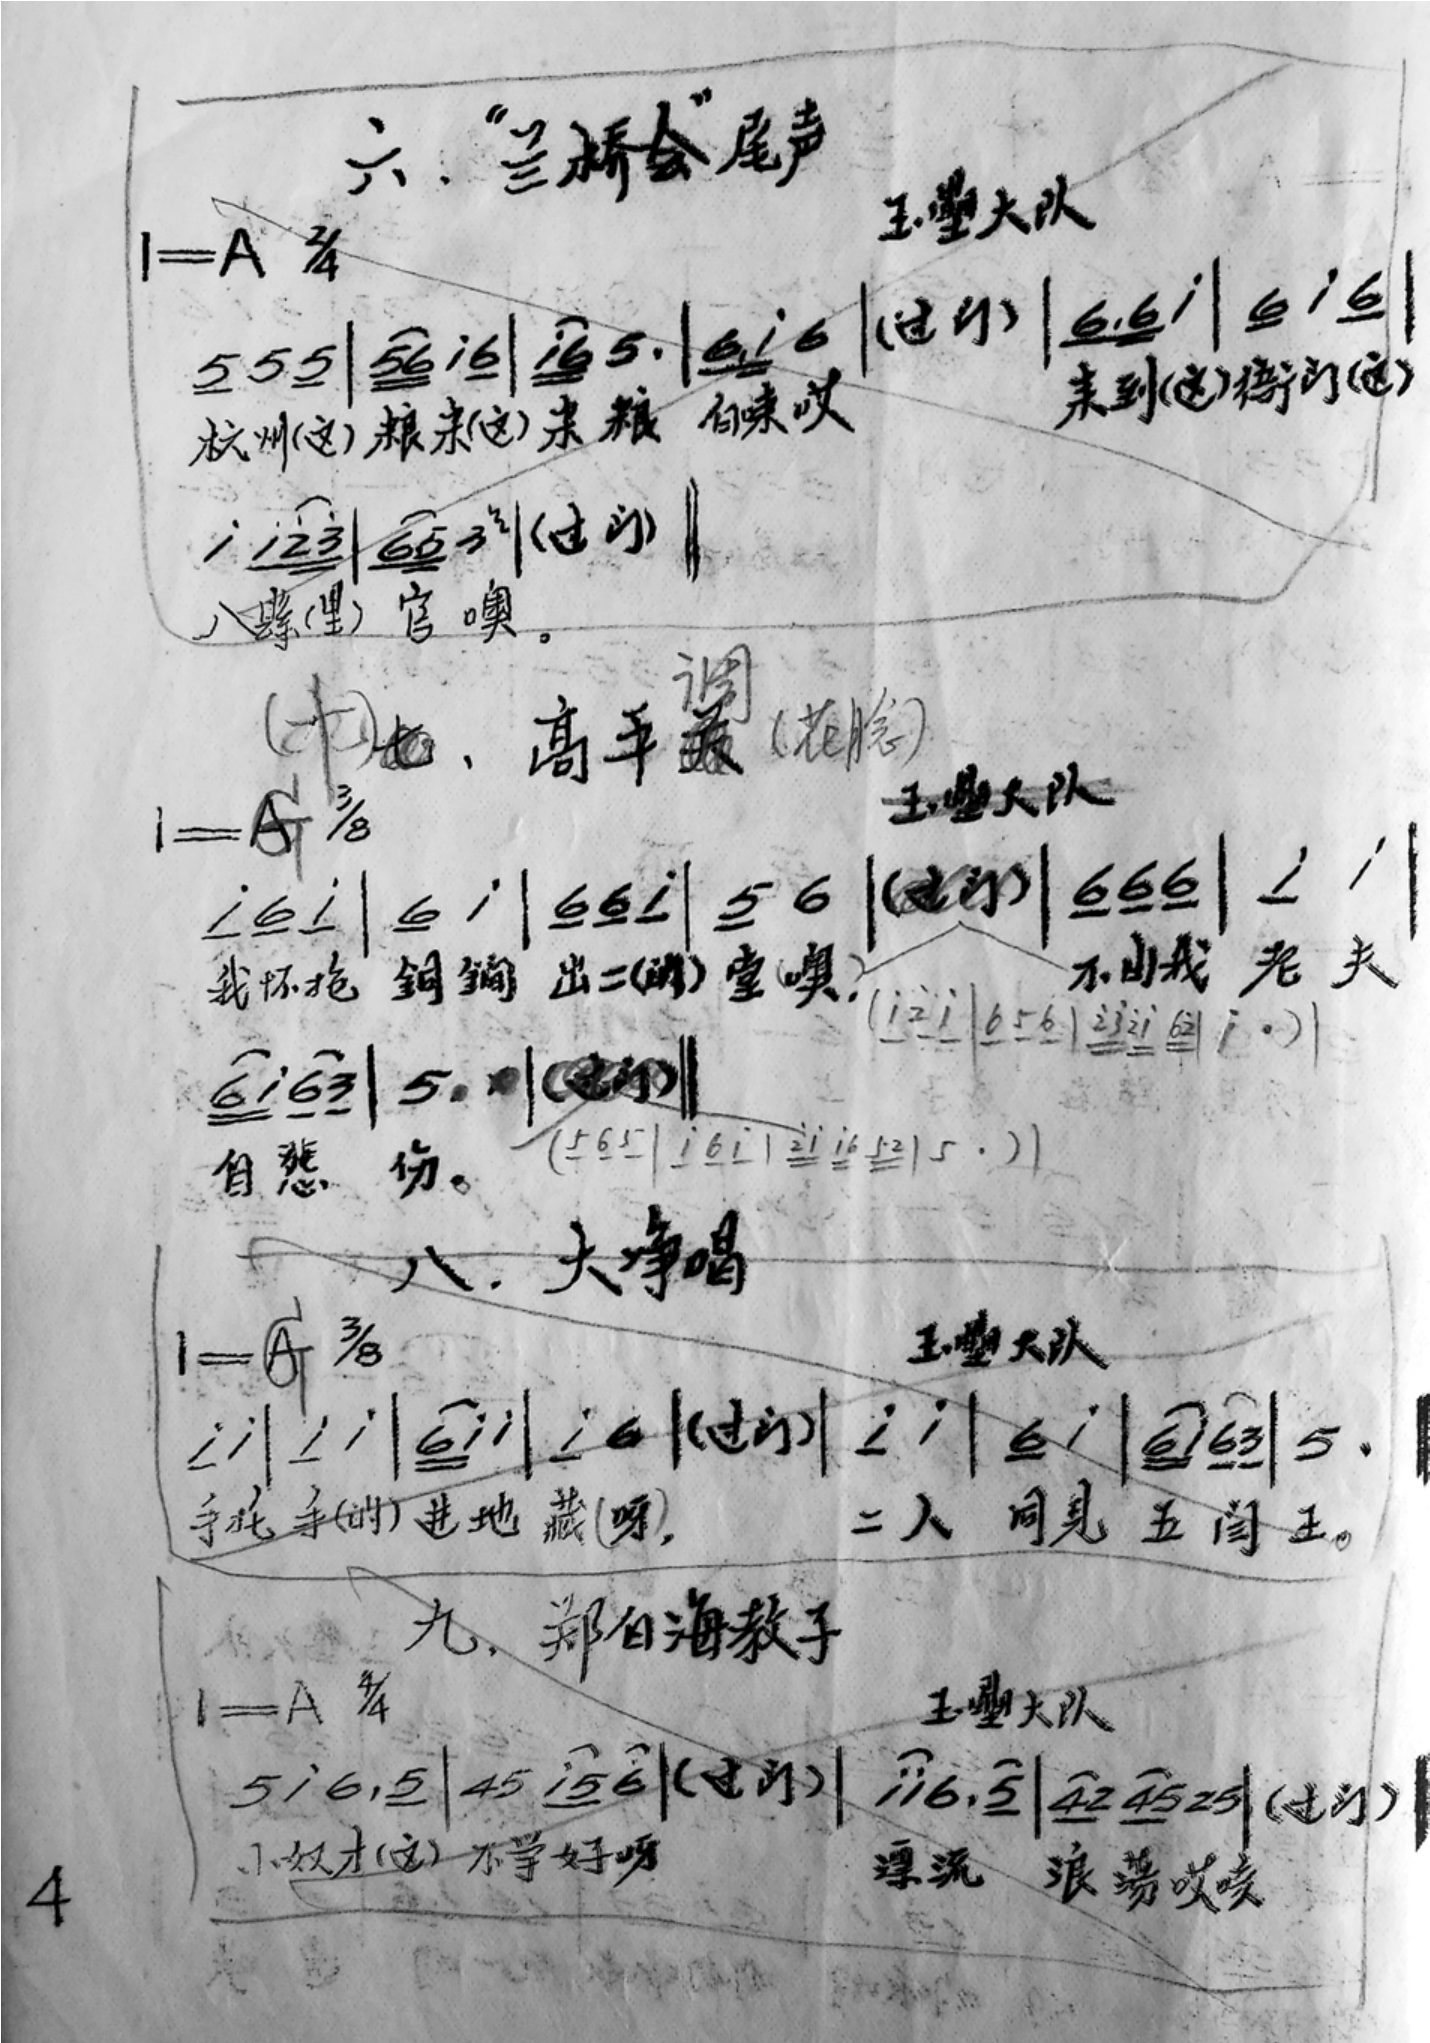 六、“兰桥会”尾声
玉塱大队
1=A 2/4
5 5 5 | 56 i6 | i6 5. | 6.i 6 | (过门) | 6.6 i | 6 i 6 |
杭州(这) 粮来(这) 来粮 自唻哎 来到(这)衙门(这)
i i23 | 65 3 2 | (过门) ‖
八縣(里) 官噢。
(十)七、高平调(花脸)
玉塱大队
1=G 3/8
i 6 i | 6 i | 6 6 i | 5 6 | (过门) | 6 6 6 | i i |
我怀抱 銅鐧 出二(的) 堂(噢) 不由我 老夫
(i 2 i | 6 5 6 | 2321 62 | i .) |
6i 63 | 5. | (过门) ‖
自悲 伤。
(5 6 5 | i 6 i | 2i i6 52 | 5 .) |
八. 大净唱
玉塱大队
1=G 3/8
i i | i i | 6i i | i 6 | (过门) | i i | 6 i | 6i 63 | 5. ‖
手托 手(的) 进地 藏(呀), 二人 同見 五 闫 王。
九. 郑自海教子
玉塱大队
1=A 4/4
5 i 6. 5 | 45 i5 6 | (过门) | i i 6. 5 | 42 45 25 | (过门) ‖
小奴才(这) 不学好呀 漂流 浪荡哎咳
4